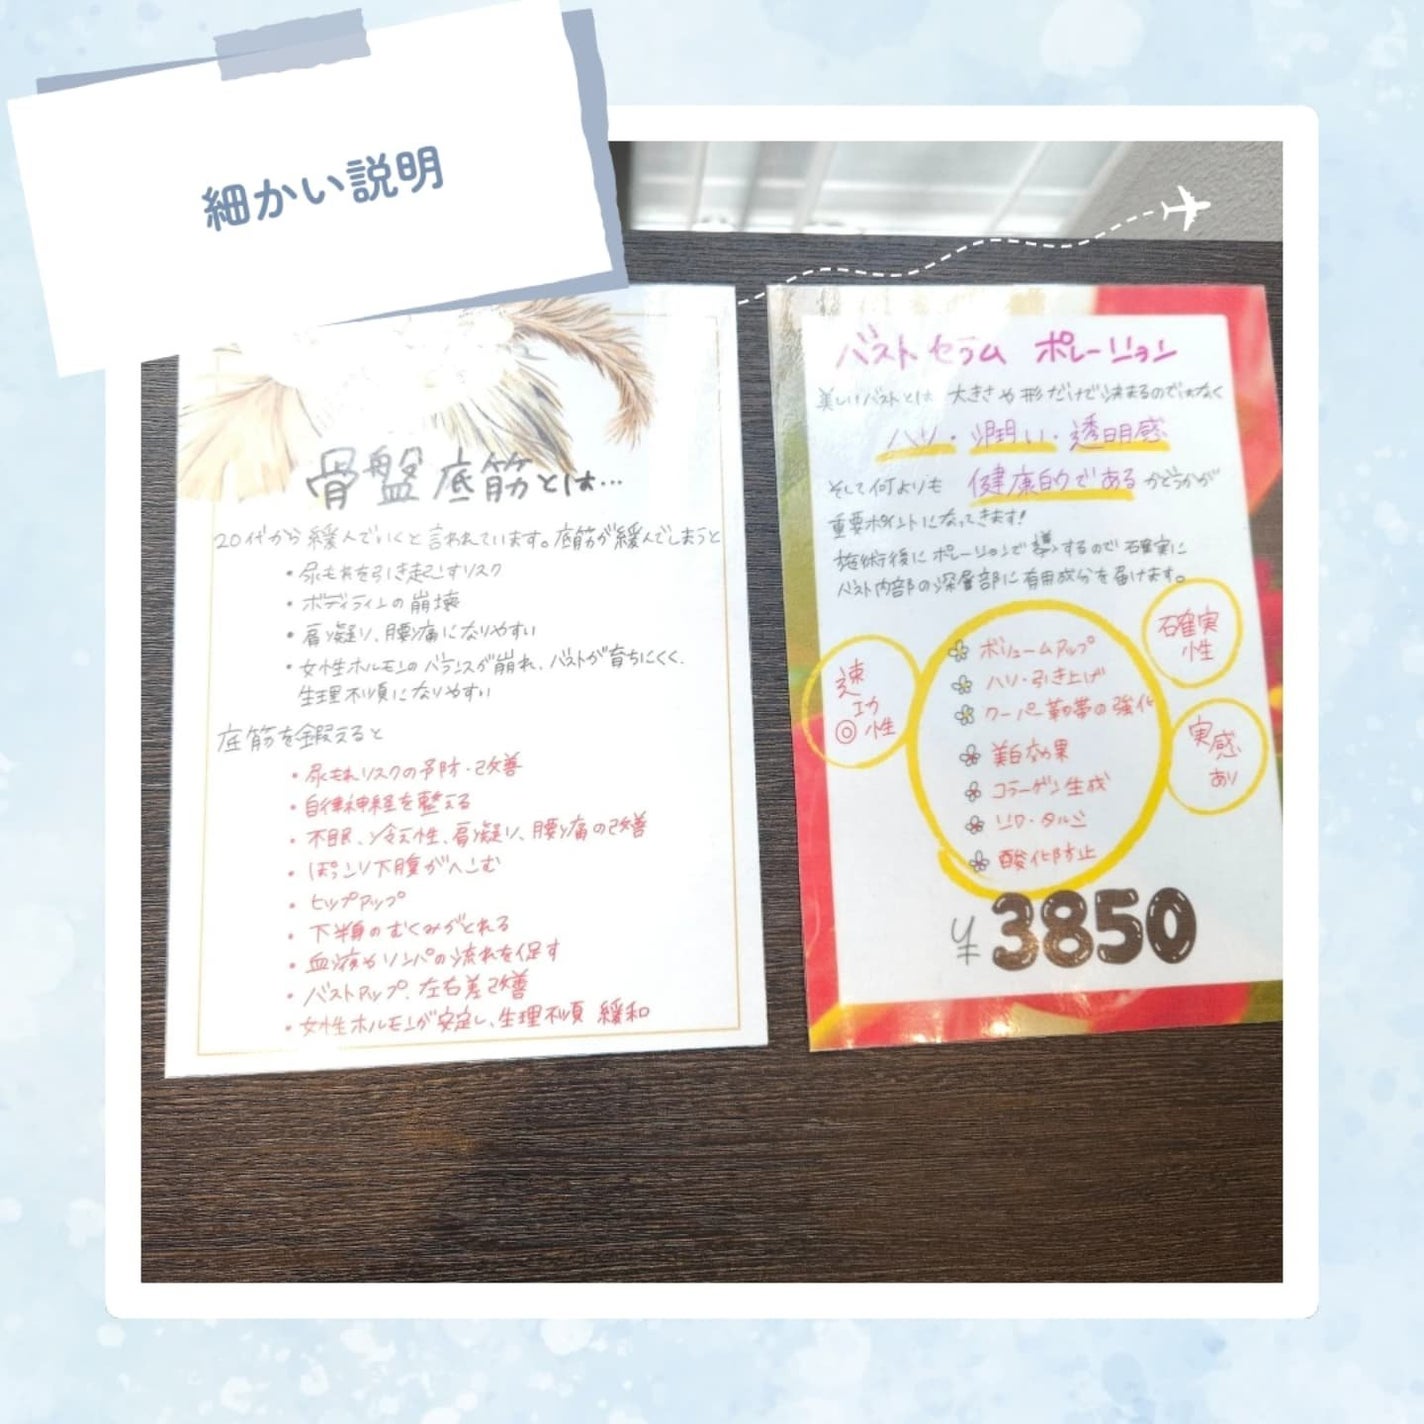 細かい説明
骨盤底筋とは…
20代から緩んでいくと言われています。底筋が緩んでしまうと
・尿もれを引き起こすリスク
・ボディラインの崩壊
・肩凝り、腰痛になりやすい
・女性ホルモンのバランスが崩れ、バストが育ちにくく、
生理不順になりやすい
底筋を鍛えると
・尿もれリスクの予防・改善
・自律神経を整える
・不眠、冷え性、肩凝り、腰痛の改善
・ぽっこり下腹がへこむ
・ヒップアップ
・下半身のむくみがとれる
・血液やリンパの流れを促す
・バストアップ、左右差改善
・女性ホルモンが安定し、生理不順 緩和
バストセラム ポレーション
美しいバストとは 大きさや形だけで決まるのではなく
ハリ・潤い・透明感
そして何よりも 健康的である かどうかが
重要ポイントになってきます!
施術後にポレーションで導入するので確実に
バスト内部の深層部に有用成分を届けます。
速功性
◎
ボリュームアップ
ハリ・引き上げ
クーパー靭帯の強化
美白効果
コラーゲン生成
シワ・タルミ
酸化防止
確実性
実感あり
¥3850